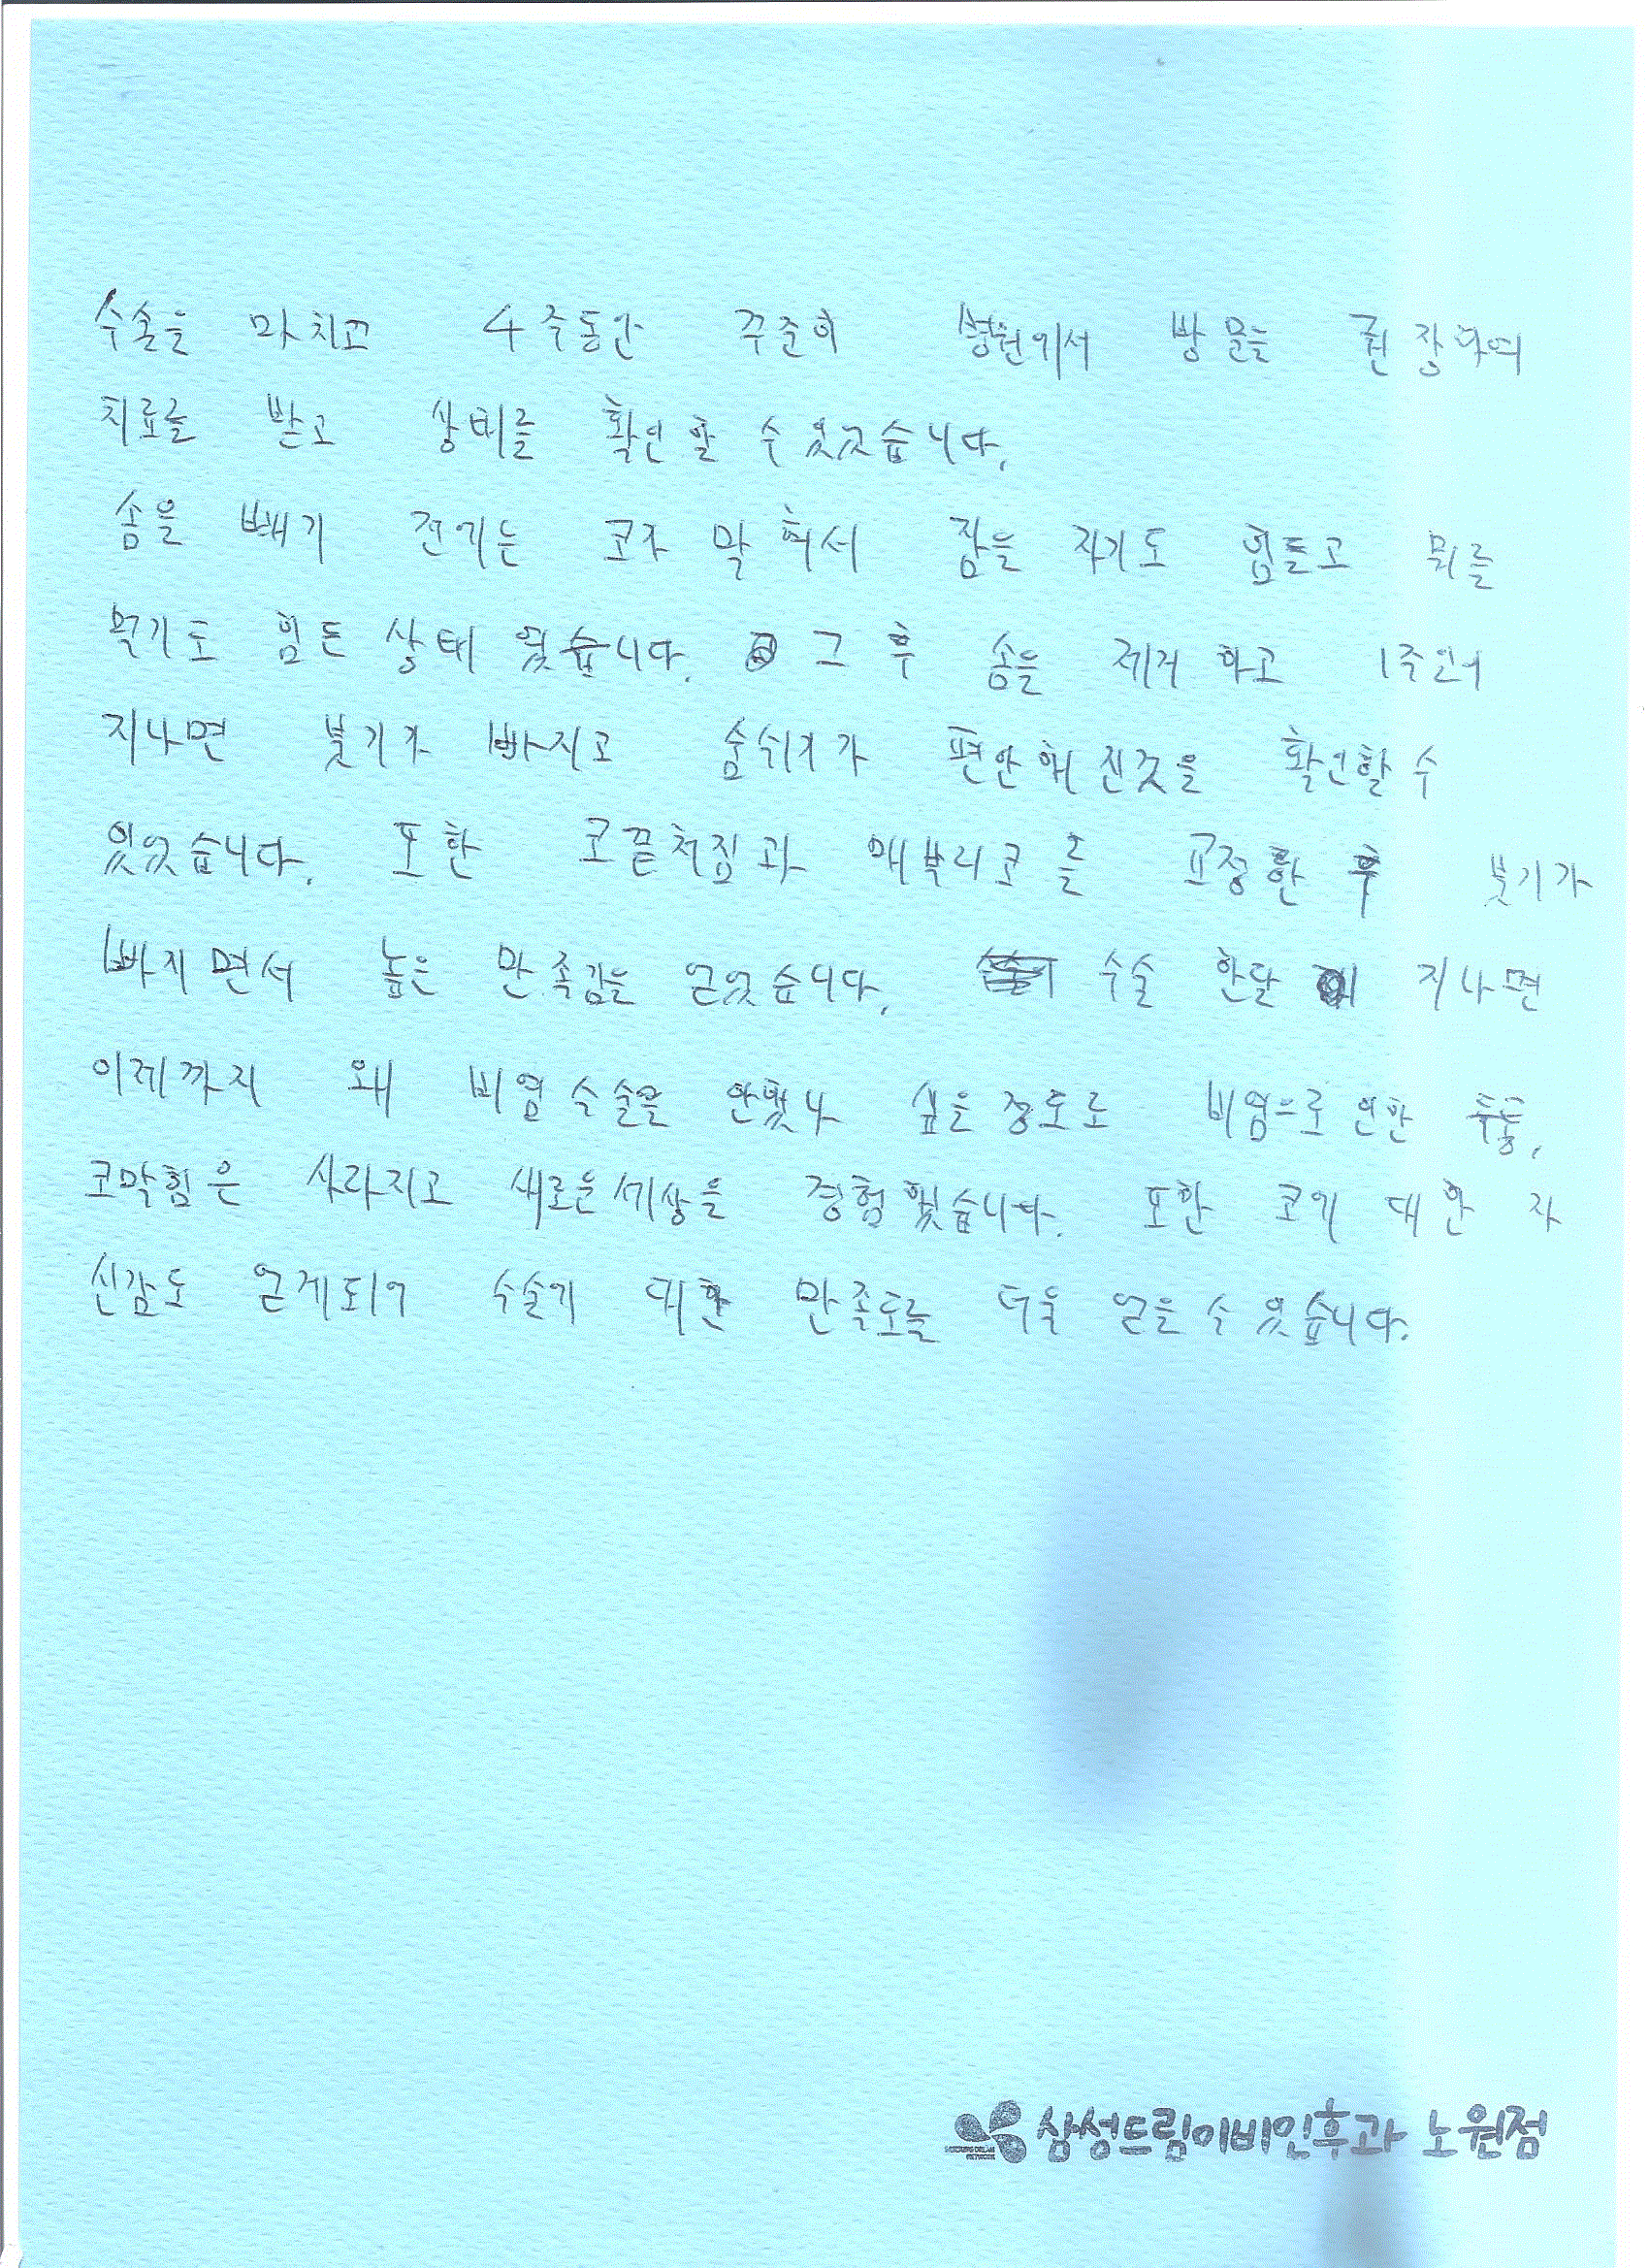 수술을 마치고 4주동안 꾸준히 병원에서 방문을 권장하여
치료를 받고 상태를 확인 할 수 있었습니다.
솜을 빼기 전에는 코가 막혀서 잠을 자기도 힘들고 뭐를
먹기도 힘든 상태 였습니다. 그 후 솜을 제거 하고 1주일이
지나면 붓기가 빠지고 숨쉬기가 편안해 진것을 확인할 수
있었습니다. 또한 코끝처짐과 매부리코를 교정한 후 붓기가
빠지면서 높은 만족감을 얻었습니다. 수술 한달이 지나면
이제까지 왜 비염수술을 안했나 싶을 정도로 비염으로 인한 두통,
코막힘은 사라지고 새로운세상을 경험했습니다. 또한 코에 대한 자
신감도 얻게되어 수술에 대한 만족도를 더욱 얻을 수 있습니다.
삼성드림이비인후과 노원점